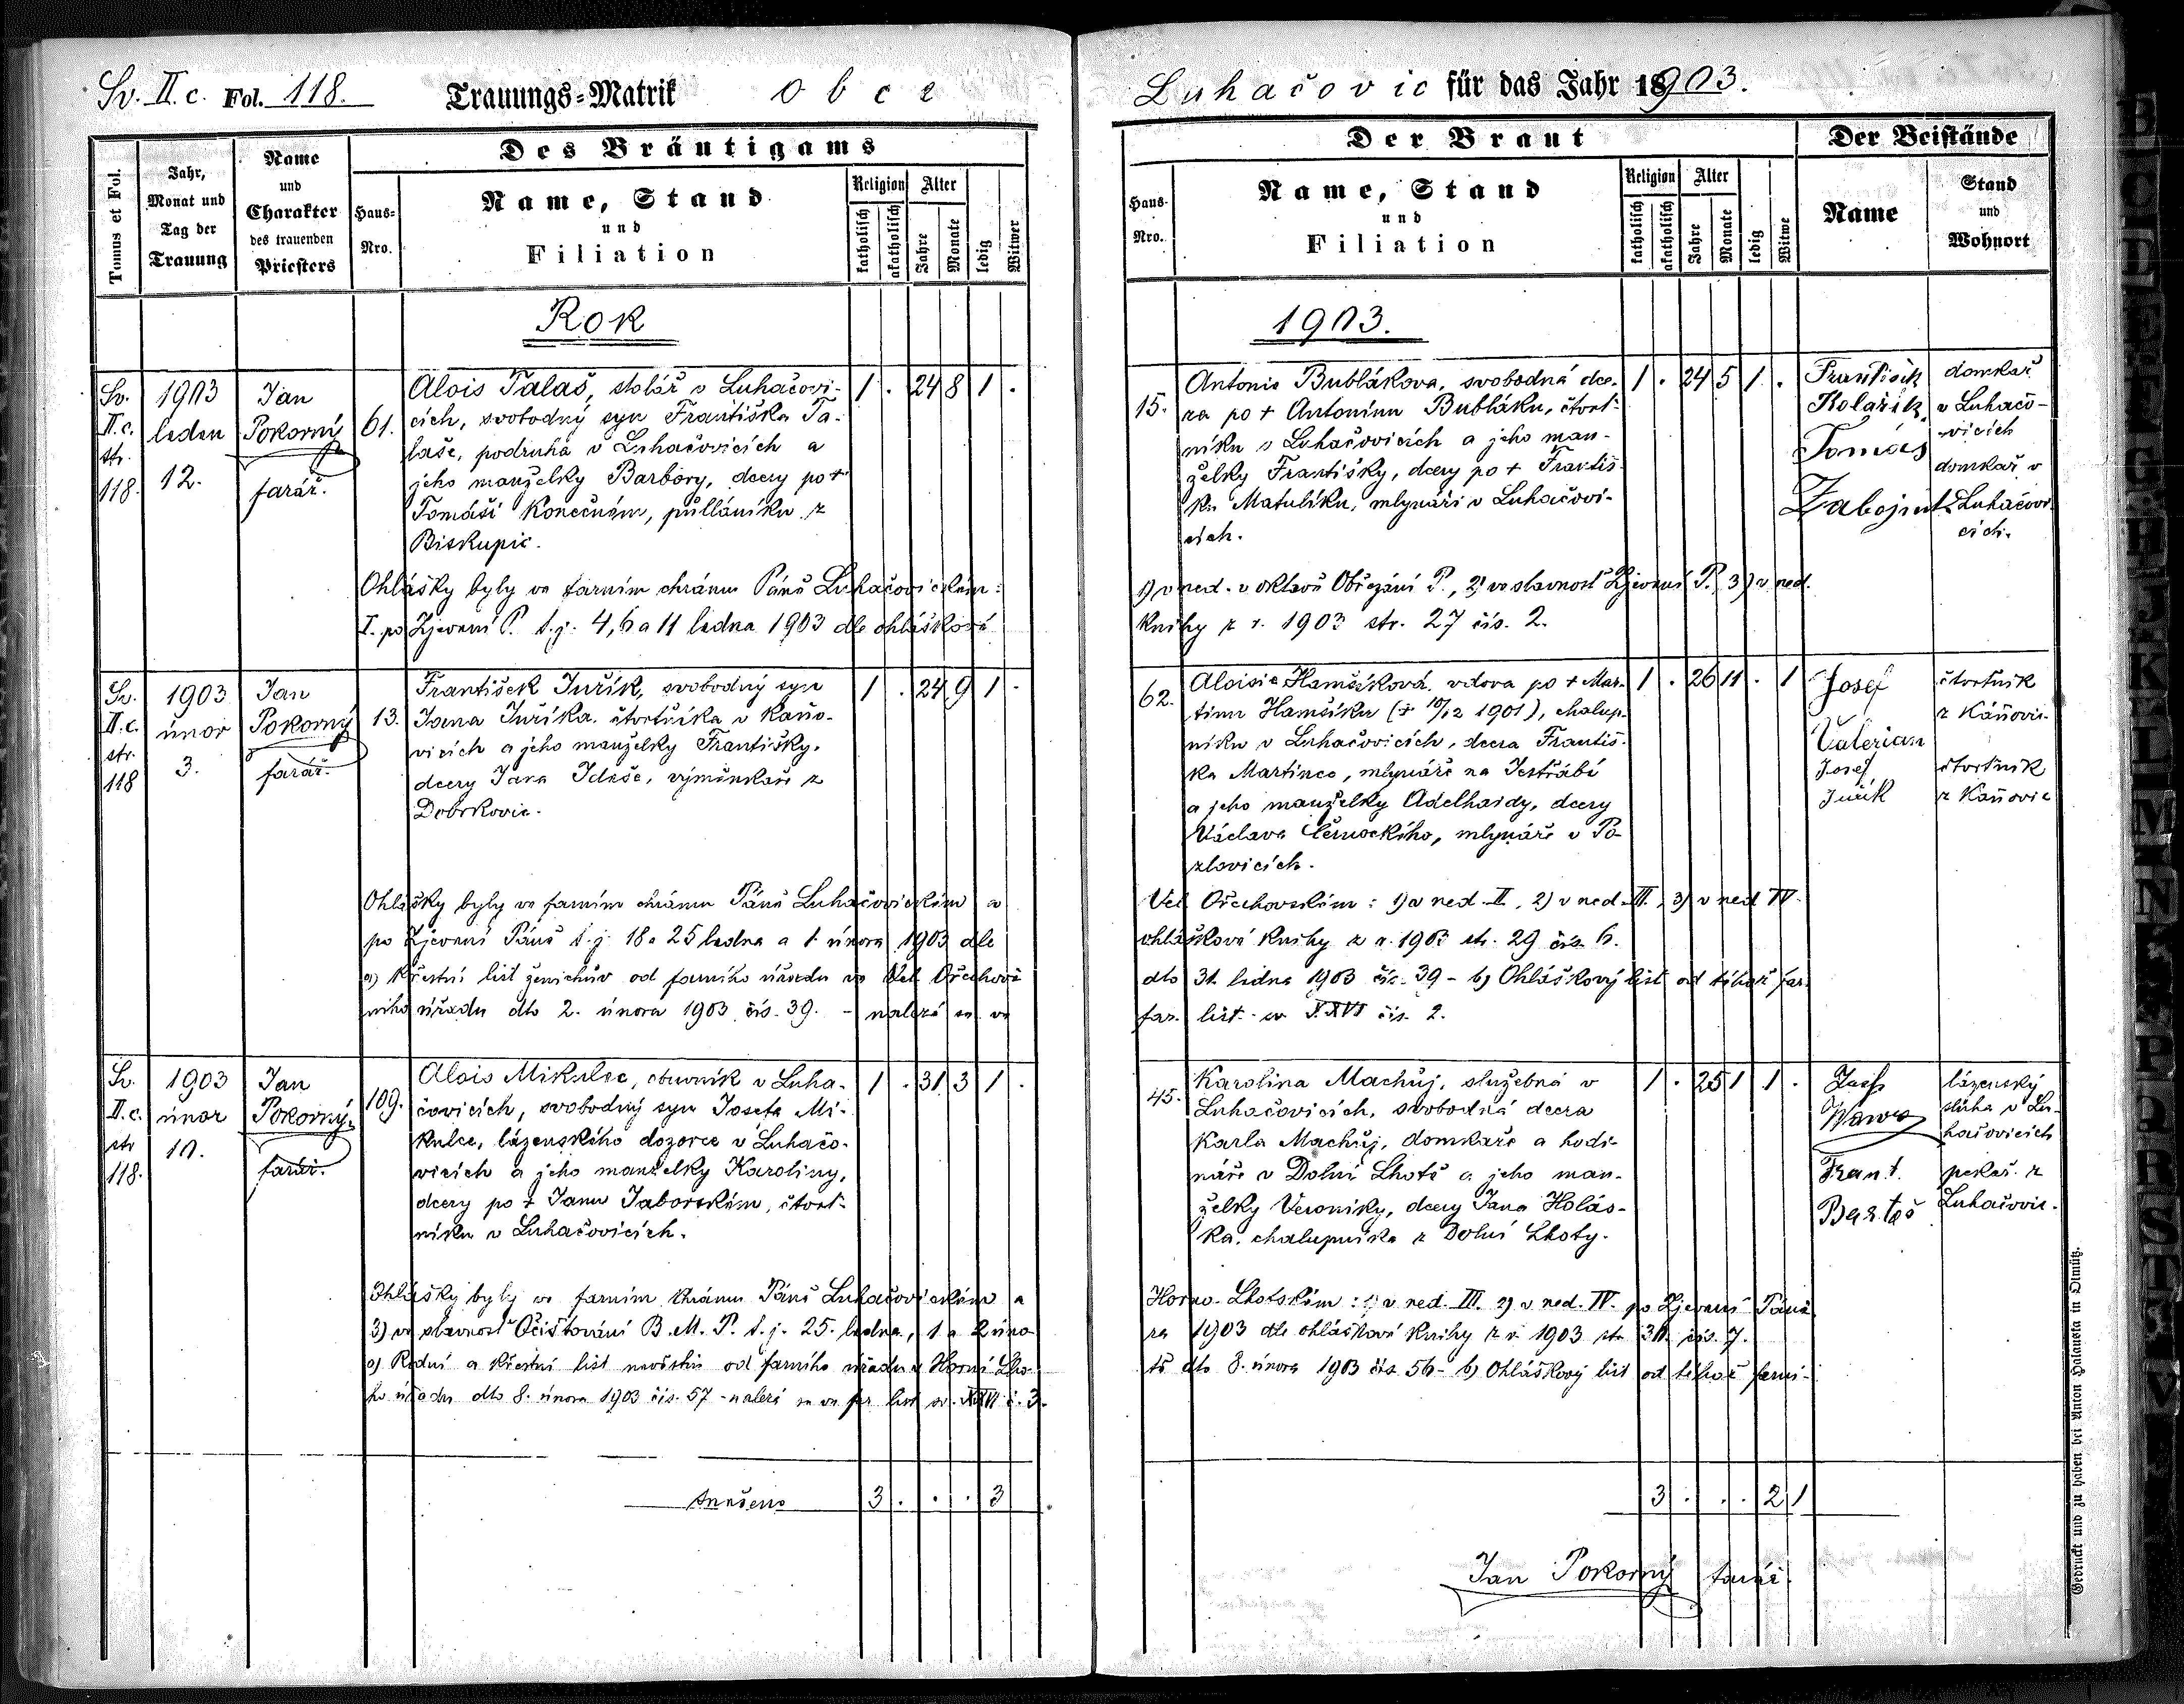 Sv. II. c. Fol. 118. Trauungs-Matrik obce
Tomus et Fol.
Jahr, Monat und Tag der Trauung
Name und Charakter des trauenden Priesters
Des Bräutigams
Haus-Nro.
Name, Stand
und
Filiation
Religion
katholisch
akatholisch
Alter
Jahre
Monate
ledig
Witwer
Rok
Sv. II. c. str. 118.
1903 leden 12.
Jan Pokorný farář.
61.
Alois Talaš, stolář v Luhačovi-
cích, svobodný syn Františka Ta-
laše, podruha v Luhačovicích a
jeho manželky Barbory, dcery po +
Tomáši Konečném, půlláníku z
Biskupic.
1 . 24 8 1 .
Ohlášky byly ve farním chrámu Páně Luhačovickém:
I. po Zjevení P. t. j. 4, 6 a 11 ledna 1903 dle ohláškové
Sv. II. c. str. 118
1903 únor 3.
Jan Pokorný farář.
13.
František Juřík, svobodný syn
Jana Juříka, čtvrtníka v Kaňo-
vicích a jeho manželky Františky,
dcery Jana Idese, výměnkaře z
Dobrkovic.
1 . 24 9 1 .
Ohlášky byly ve farním chrámu Páně Luhačovickém a
po Zjevení Páně t. j. 18 a 25 ledna a 1. února 1903 dle
a) Křestní list ženichův od farního úřadu ve Vel. Ořechově
ního úřadu dto 2. února 1903 čís. 39. - nalezá se ve
Sv. II. c. str 118.
1903 únor 10.
Jan Pokorný, farář.
109.
Alois Mikulec, obuvník v Luha-
čovicích, svobodný syn Josefa Mi-
kulce, lázenského dozorce v Luhačo-
vicích a jeho manželky Karoliny,
dcery po + Janu Jaborském, čtvrt-
níku v Luhačovicích.
1 . 31 3 1 .
Ohlášky byly ve farním chrámu Páně Luhačovickém a
3) ve slavnost Očišťování B. M. P. t. j. 25. ledna, 1 a 2 úno-
a) Rodní a křestní list nevěstin od farního úřadu v Horní Lho-
ho úřadu dto 8. února 1903 čís. 57 - nalezá se ve far. list. sv. XXVI č. 3.
Sneseno 3 . . . 3 .
Luhačovic für das Jahr 1903.
Der Braut
Haus-Nro.
Name, Stand
und
Filiation
Religion
katholisch
akatholisch
Alter
Jahre
Monate
ledig
Witwe
Der Beistände
Name
Stand und Wohnort
1903.
15.
Antonie Bublákova, svobodná dce-
ra po + Antonínu Bubláku, čtvrt-
níku v Luhačovicích a jeho man-
želky Františky, dcery po + Františ-
ku Matulíku, mlynáři v Luhačovi-
cích.
1 . 24 5 1 .
František Kolařík
domkař v Luhačo-
vicích
Tomáš Zabojnik
domkař v Luhačovi-
cích.
1) v ned. v oktavě Obřezání P., 2) ve slavnost Zjevení P. 3) v ned.
knihy z r. 1903 str. 27 čís. 2.
62.
Aloisie Hamšíková, vdova po + Mar-
tinu Hamšíku (+ 10/12 1901), chalup-
níku v Luhačovicích, dcera Františ-
ka Martince, mlynáře na Jestřábí
a jeho manželky Adelhaidy, dcery
Václava Černockého, mlynáře v Po-
zlovicích.
1 . 26 11 . 1
Josef Valerian
čtvrtník z Káňovic.
Josef Juřík
čtvrtník z Kaňovic
Vel. Ořechovském: 1) v ned. II, 2) v ned. III, 3) v ned. IV.
ohláškové knihy z r. 1903 str. 29 čís. 6.
dto 31. ledna 1903 čís. 39 - b) Ohláškový list od téhož far-
far. list. sv. XXVI čís. 2.
45.
Karolina Machůj, služebná v
Luhačovicích, svobodná dcera
Karla Machůj, domkaře a hodi-
náře v Dolní Lhotě a jeho man-
želky Veroniky, dcery Jana Holás-
ka, chalupníka z Dolní Lhoty.
1 . 25 1 1 .
Josef Wawra
lázenský sluha v Lu-
hačovicích
Frant. Bartoš
pekař z Luhačovic.
Horno-Lhotském: 1) v ned. III. 2) v ned. IV. po Zjevení Páně
ra 1903 dle ohláškové knihy z r. 1903 str. 30. čís. 7.
tě dto 8. února 1903 čís. 56 - b) Ohláškový list od téhož farní-
3 . . . 2 1
Jan Pokorný farář.
Gedruckt und zu haben bei Anton Halauska in Olmütz.